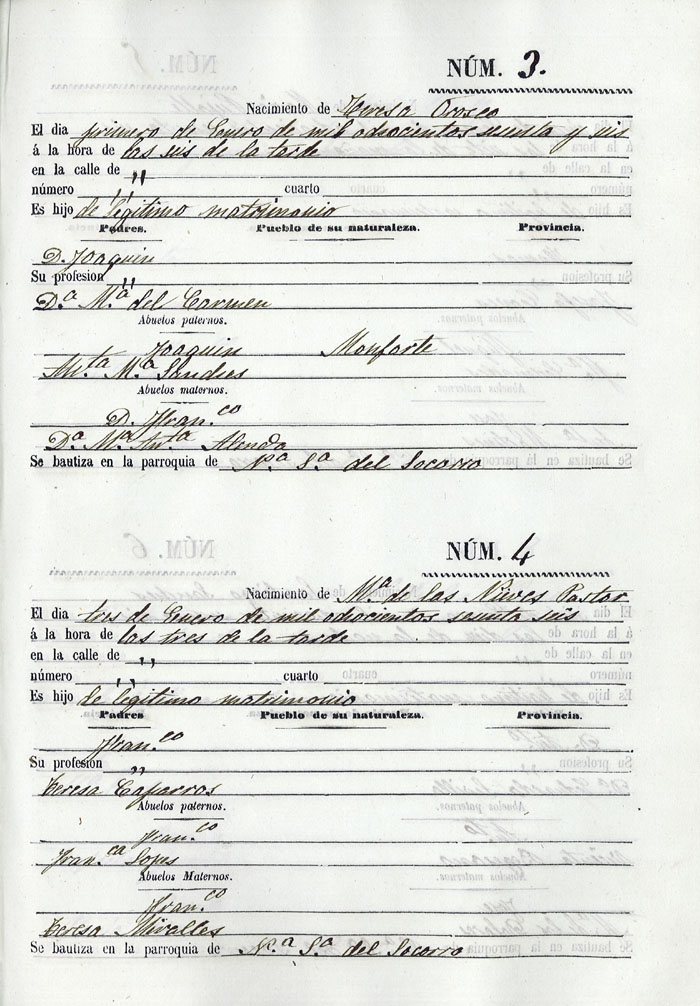 NÚM. 3.
Nacimiento de Teresa Orosco
El dia primero de Enero de mil ochocientos sesenta y seis
á la hora de las seis de la tarde
en la calle de "
número " cuarto
Es hijo de legitimo matrimonio
Padres. Pueblo de su naturaleza. Provincia.
D. Joaquin
Su profesion "
D.ª M.ª del Carmen
Abuelos paternos.
Joaquin Monforte
Ant.ª M.ª
Abuelos maternos.
D. Fran.co
D.ª M.ª Ant.ª Alenda
Se bautiza en la parroquia de N.ª S.ª del Socorro
NÚM. 4
Nacimiento de M.ª de las Nieves Pastor
El dia tres de Enero de mil ochocientos sesenta seis
á la hora de las tres de la tarde
en la calle de "
número " cuarto
Es hijo de legitimo matrimonio
Padres Pueblo de su naturaleza. Provincia.
Fran.co
Su profesión "
Teresa Caparros
Abuelos paternos.
Fran.co
Fran.ca Sopes
Abuelos Maternos.
Fran.co
Teresa Miralles
Se bautiza en la parroquia de N.ª S.ª del Socorro